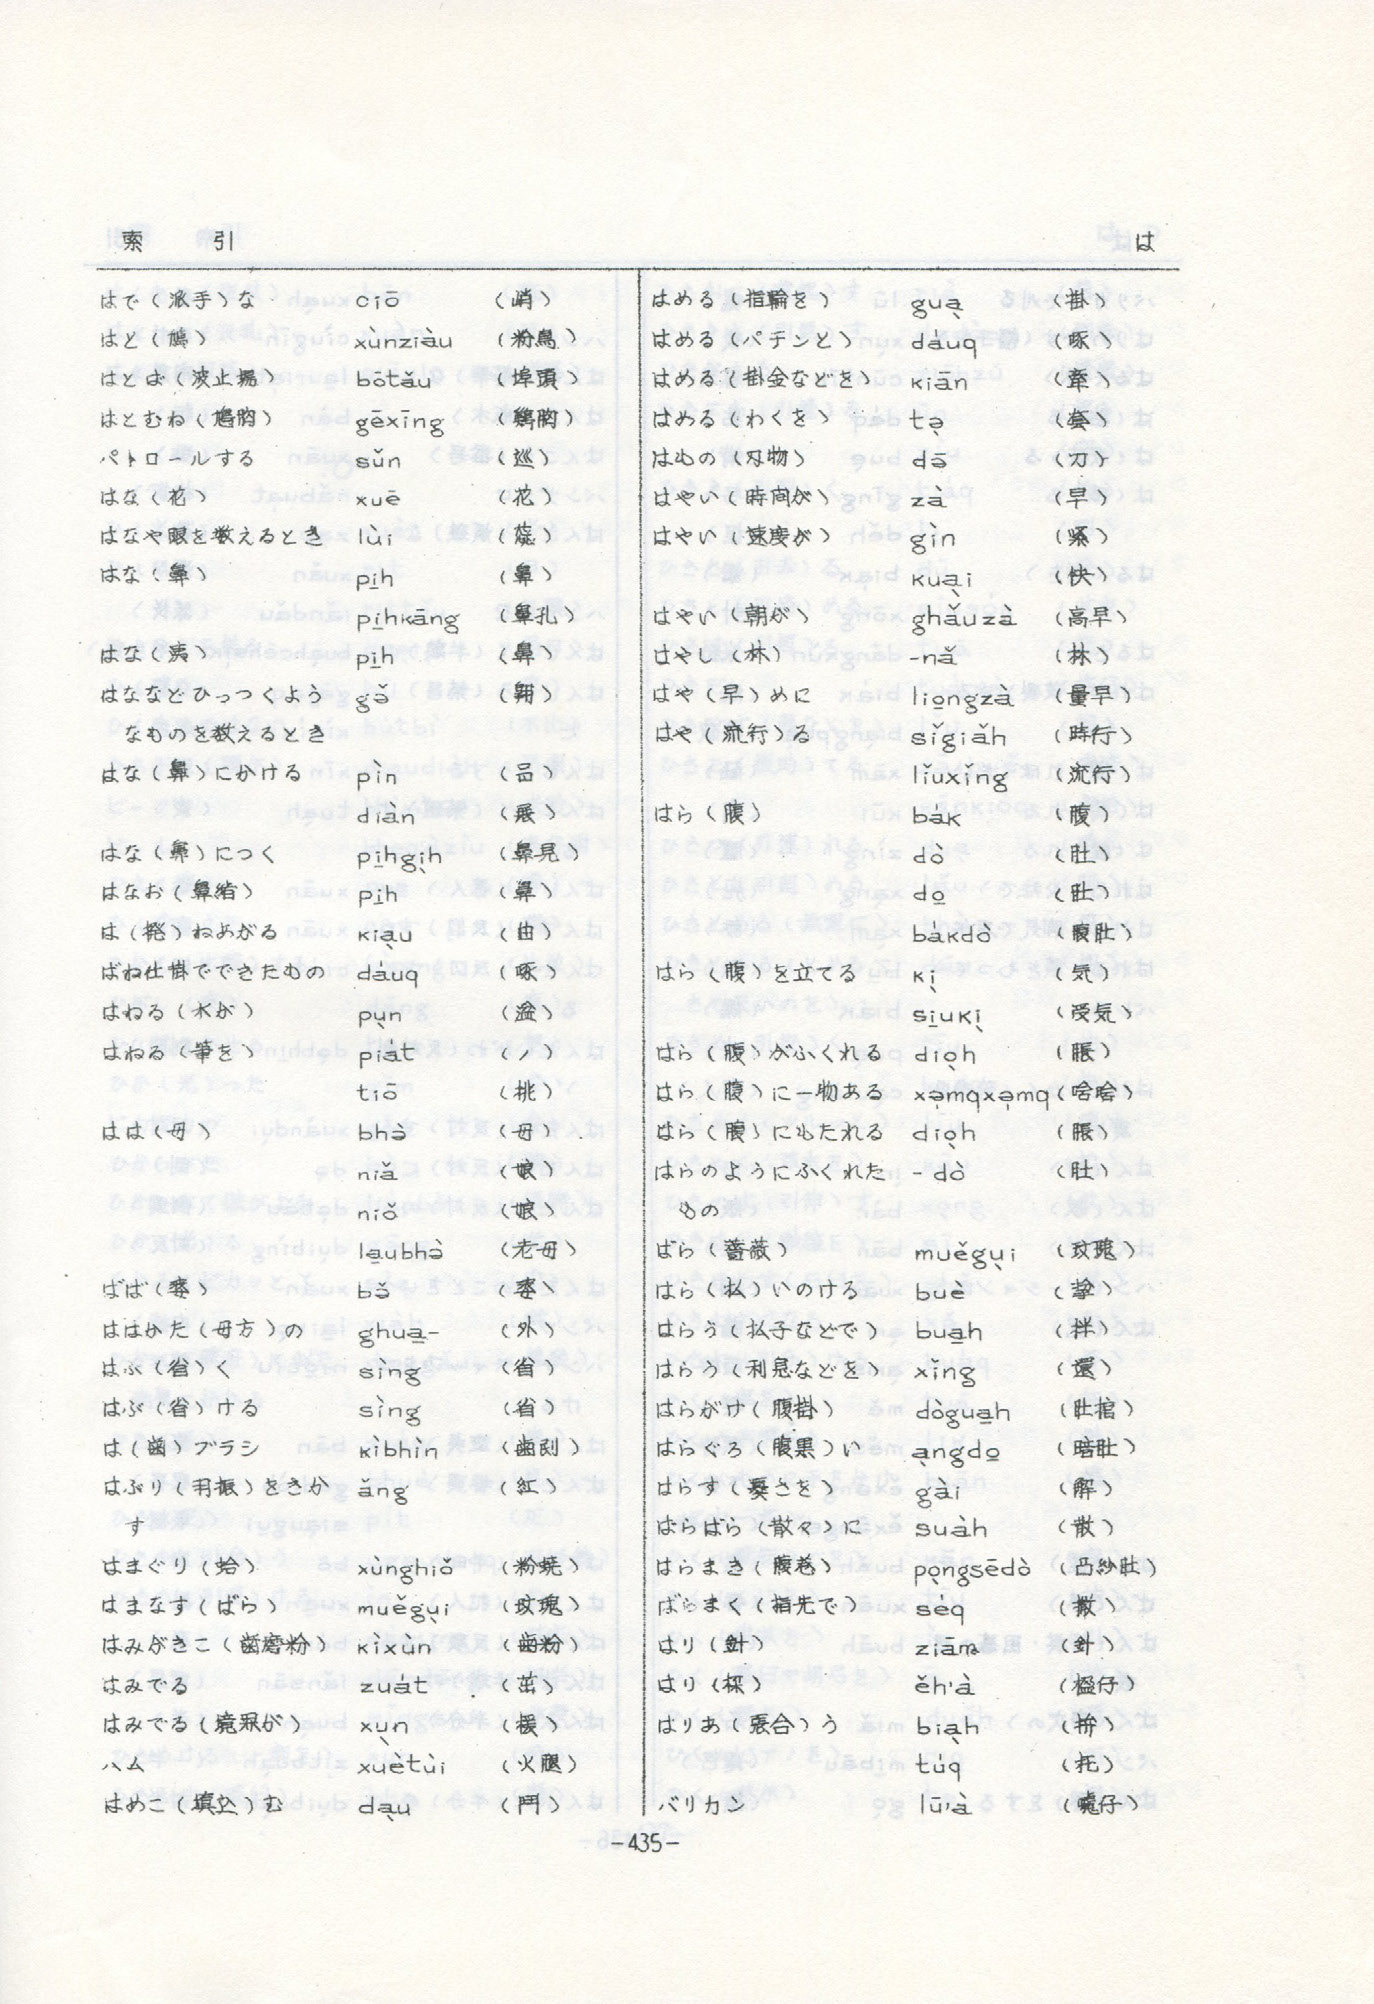 索 引
は
はで(派手)な ciō (峭)
はと(鳩) xùnziàu (粉鳥)
はとば(波止場) bōtáu (埠頭)
はとむね(鳩胸) gēxīng (鶏胸)
パトロールする sǔn (巡)
はな(花) xuē (花)
はなや眼を数えるとき lùi (蕊)
はな(鼻) pi̱h (鼻)
pi̱hkāng (鼻孔)
はな(洟) pi̱h (鼻)
はななどひっつくよう gǒ
なものを数えるとき
はな(鼻)にかける pìn (品)
diàn (展)
はな(鼻)につく pi̱hgi̖h (鼻見)
はなお(鼻緒) pi̱h (鼻)
は(撥)ねあがる kia̖u (曲)
ばね仕掛でできたもの dauq (啄)
はねる(水が) pu̖n (湓)
はねる(筆を) piat (ノ)
tiō (挑)
はは(母) bhə̀ (母)
niǎ (娘)
niǒ (娘)
la̱ubhə̀ (老母)
ばば(婆) bə̌ (婆)
ははかた(母方)の ghua̱- (外)
はぶ(省)く sìng (省)
はぶ(省)ける sìng (省)
は(歯)ブラシ kìbhìn (歯刷)
はぶり(羽振)をきか áng (紅)
す
はまぐり(蛤) xùnghiǒ (粉蟯)
はまなす(ばら) muěgu̖i (玫瑰)
はみがきこ(歯磨粉) kìxùn (歯粉)
はみでる zuát (茁)
はみでる(境界が) xu̖n (援)
ハム xuètùi (火腿)
はめこ(填込)む da̖u (鬥)
はめる(指輪を) gua̖ (掛)
はめる(パチンと) dáuq (啄)
はめる(掛金などを) kiān (牽)
はめる(わくを) tə̖ (套)
はもの(刃物) də̄ (刀)
はやい(時間が) zà (早)
はやい(速度が) gìn (緊)
kua̖i (快)
はやい(朝が) ghǎuzà (高早)
はやし(林) -nǎ (林)
はや(早)めに lio̱ngzà (量早)
はや(流行)る sǐgiǎh (時行)
liǔxǐng (流行)
はら(腹) bák (腹)
dò (肚)
do̱ (肚)
bàkdò (腹肚)
はら(腹)を立てる ki̖ (気)
si̱uki̖ (受気)
はら(腹)がふくれる dio̖h (脹)
はら(腹)に一物ある xa̖mqxa̖mq (哈哈)
はら(腹)にもたれる dio̖h (脹)
はらのようにふくれた -dò (肚)
もの
ばら(薔薇) muěgu̖i (玫瑰)
はら(払)いのける buè
はらう(払子などで) bua̱h (拌)
はらう(利息などを) xǐng (還)
はらがけ(腹掛) dògua̱h (肚棺)
はらぐろ(腹黒)い a̖ngdo̱ (暗肚)
はらす(憂さを) gài (解)
ばらばら(散々)に suàh (散)
はらまき(腹巻) po̖ngsēdò (凸紗肚)
ばらまく(指先で) seq
はり(針) ziām (針)
はり(梁) ěh'à (楹仔)
はりあ(張合)う bia̖h (拚)
tuq (托)
バリカン lū'à
-435-